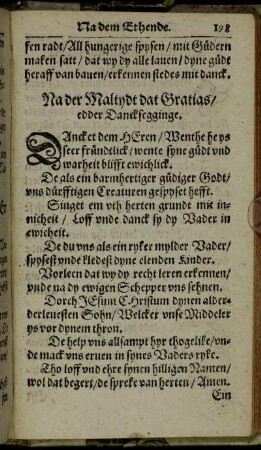 Na dem Ethende. 198
sen radt/All hungerige spysen/mit Güdern
maken satt/dat wy dy alle lauen/dyne güdt
heraff van bauen/erkennen stedes mit danck.
Na der Maltydt dat Gratias/
edder Dancksegginge.
DAncket dem HEren/Wenthe he ys
seer fründtlick/wente syne güdt vnd
warheit blifft ewichlick.
De als ein barmhertiger güdiger Godt/
vns dürfftigen Creaturen gespyset hefft.
Singet em vth herten grundt mit in-
nicheit/Loff vnde danck sy dy Vader in
ewicheit.
De du vns als ein ryker mylder Vader/
spysest vnde kledest dyne elenden Kinder.
Vorleen dat wy dy recht leren erkennen/
vnde na dy ewigen Schepper vns sehnen.
Dorch JEsum Christum dynen alder-
derleuesten Sohn/Welcker vnse Middeler
ys vor dynem thron.
De help vns allsampt hyr thogelike/vn-
de mack vns eruen in synes Vaders ryke.
Tho loff vnd ehre synen hilligen Namen/
wol dat begert/de spreke van herten/Amen.
Ein